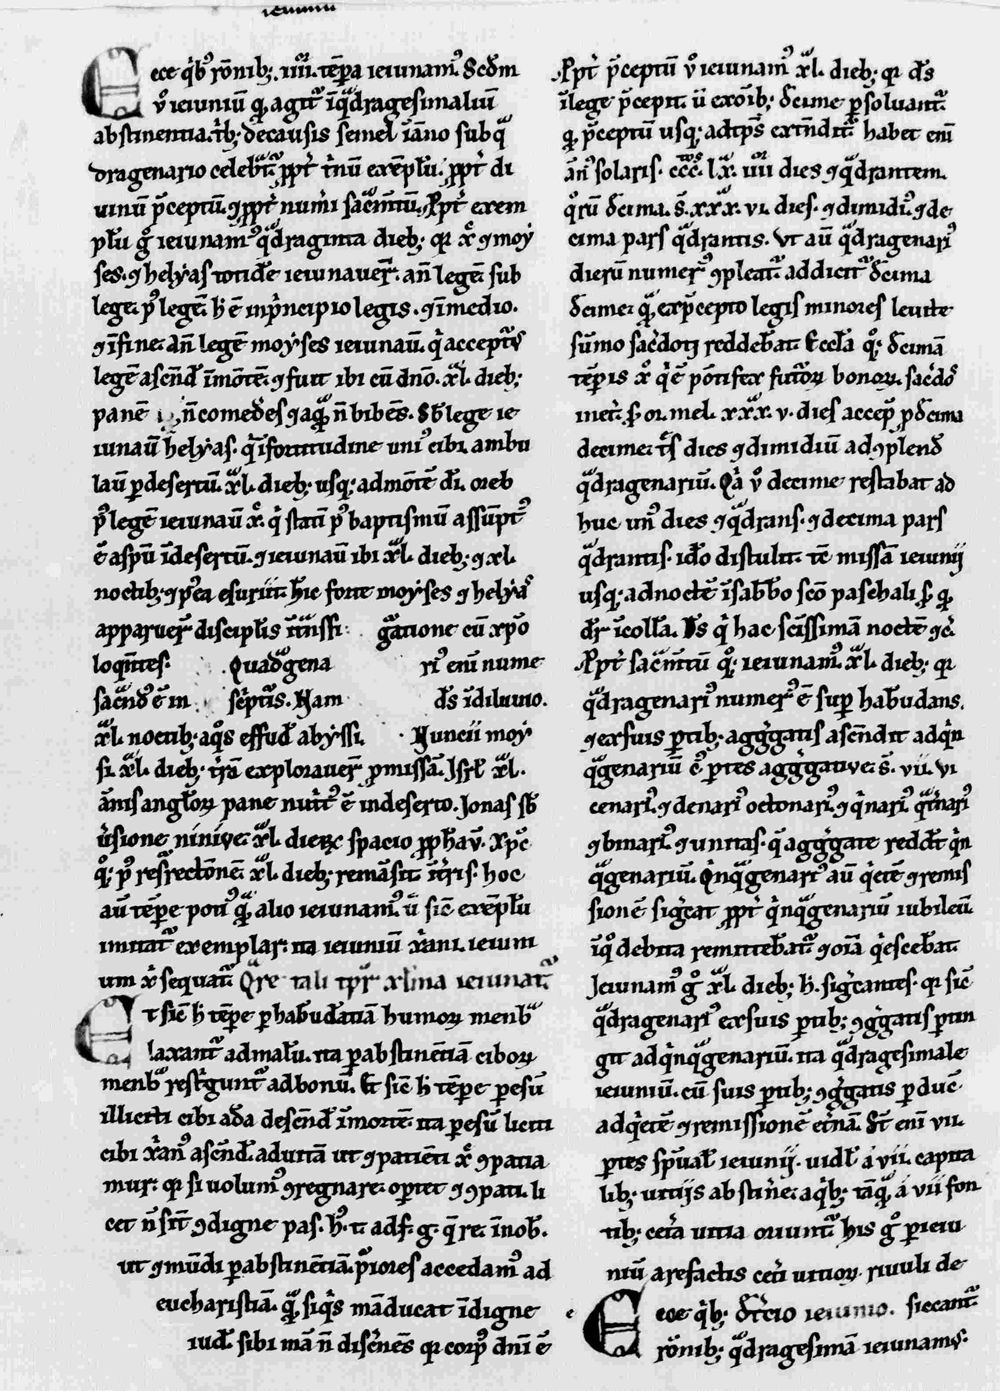 ieiunii
Ecce q̄b; rōnib; .iiii. tēpa ieiunam᷒. Scd̄m
v̊ ieiuniū q̄ agit᷑ ī q̄dragesimaliū
abstinentia. t̄b; de causis semel ī āno sub q̄
dragenario celebrat᷑. ppt̄ t̄nū exēplū. ppt̄ di
uinū p̄ceptū. ꝯ ppt̄ num̄i sac̄mtū. Ppt̄ exem
plū g̊ ieiunam᷒ q̄draginta dieb; qꝛ xp̄c ꝯ moy
ses. ꝯ helyas totidē ieiunauer̄. an̄ legē. sub
lege. p᷒ legē. h̄ ē in p̄ncipio legis. ꝯ ī medio.
ꝯ ī fine. an̄ legē moyses ieiunau̅. q̄ accept᷒
legē ascend̄ ī mōtē. ꝯ fuit ibi cū dn̄o .xl. dieb;
panē n̄ comedēs ꝯ aq̄ n̄ bibēs. Sb̄ lege ie
iunau̅ helyas. q̄ ī fortitudine uni᷒ cibi ambu
lau̅ p desertū .xl. dieb; usq; ad mōtē dī. oreb
p᷒ legē ieiunau̅ xp̄c. q̄ statī p᷒ baptismū assūpt᷒
ē a sp̄u ī desertū. ꝯ ieiunau̅ ibi .xl. dieb; ꝯ xl.
noctib; ꝯ p᷒ea esuriit. hīc forte moyses ꝯ helyas
apparuer̄ discipl̄is ī t̄nsfi gatione cū xp̄o
loq̄ntes. Quad̄gena ri᷒ eni nume
sac̄nd᷒ ē in sc̄ptis. Nam ds̄ ī diluuio.
.xl. noctib; aq̄s effud̄ abyssi. Nuncii moy
si .xl. dieb; t̄rā explorauer̄ pmissā. Isrl̄ .xl.
ānis anglꝝ pane nutit᷒ ē in deserto. Jonas sb̄
u̅sione niniue .xl. dierꝝ spacio pphau̅. Xp̄c
q; p᷒ resrectōnē .xl. dieb; remāsit ī t̄ris. hoc
au̅ tēpe poti᷒ q̄ alio ieiunam᷒. ū sic exēplū
imitat᷑ exemplar. ita ieiuniū xp̄ani. ieiuni
um xp̄i sequat᷑. Q̄re tali tpr̄ xl̄ma ieiunat᷑.
Et sic h̄ tēpe p habūdātiā humoꝝ menb̄
laxant᷑ ad malū. ita p abstinētiā ciboꝝ
menb̄ rest̄gunt᷑ ad bonū. Et sic h̄ tēpe p esū
illiciti cibi adā descend̄ ī mortē. ita p esū liciti
cibi xp̄an᷒ ascend̄ ad uitā ut ꝯpatiēti xp̄o ꝯpatia
mur. qꝛ si uolum᷒ ꝯregnare. oportet ꝯ ꝯpati. li
cet n̄ sīt ꝯdigne pas.
ut ꝯmūdi p abstinētiā p̄iores accedam᷒ ad
eucharistiā. q̄ siq̄s māducat īdigne
iud̄. sibi mā n̄ discnēs qꝛ corp᷒ dn̄i ē
Ppt̄ p̄ceptū v̊ ieiunam᷒ .xl. dieb; qꝛ ds̄
ī lege p̄cepit. ū ex oīb; decime psoluant᷑.
q̄ p̄ceptū usq; ad tp̄s extēdit᷑. habet eni
ān᷒ solaris .ccc. lx. uii dies ꝯ q̄drantem.
q̊rū decima. s. xxx. vi. dies. ꝯ dimidi᷒. ꝯ de
cima pars q̄drantis. Vt au̅ q̄dragenari᷒
dierū numer᷒ ꝯpleat᷑ addicit᷑ decima
decime. q̄ ex p̄cepto legis minores leuite
sūmo sac̄doti reddebāt. Eccl̄a q; decimā
tēpis xp̄o q̄ ē pōtifex futuroꝝ bonoꝝ. sac̄dō
dies accep̄ p decima
decime. t̄s dies ꝯ dimidiū ad ꝯplend̄
q̄dragenariū. Q̄a v̊ decime restabat ad
huc un᷒ dies ꝯ q̄drans. ꝯ decima pars
q̄drantis. idō distulit tē missā ieiunij
usq; ad noctē ī sabb̄o sc̄o paschali. s. q̄
dr̄ ī colla. Ds̄ q̄ hac sc̄issimā noctē ꝯc̄.
Ppt̄ sac̄mtū q; ieiunam᷒ .xl. dieb; qꝛ
q̄dragenari᷒ numer᷒ ē sup habūdans.
ꝯ ex suis ptib; agḡgatis ascēdit ad q̄n
q̄genariū. ē ptes agḡgatiue. s. vii. vi
cenari᷒. ꝯ denari᷒ octonari᷒. ꝯ q̄nari᷒ q̄t̄nari᷒
ꝯ binari᷒. ꝯ unitas. q̄ agḡgate reddūt q̄n
q̄genariū. Q̄nq̄genari᷒ au̅ q̄etē ꝯ remis
sionē sigc̄at ppt̄ q̄nq̄genariū iubileū.
ī q̊ debita remittebāt᷑ ꝯ oīa q̄escebāt.
Ieiunam᷒ g̊ .xl. dieb; h̄. sigc̄antes. qꝛ sic
q̄dragenari᷒ ex suis ptib; ꝯḡgatis ptin
git ad q̄nq̄genariū. ita q̄dragesimale
ieiuniū. cū suis ptib; ꝯḡgatis p ducē
ad q̄etē ꝯ remissionē et̄nā. St̄ eni vii.
ptes sp̄ual̄ ieiunij. uidl̄ a vii. capita
lib; uitijs abstinē. a q̄b; tāq̄ a vii fon
tib; cet̄a uitia oriunt᷑. his g̊ p ieiu
niū arefactis cet̄i uitioꝝ riuuli de
siccant᷑.
Ecce q̄b; de t̄cio ieiunio.
rōnib; q̄dragesimā ieiunam᷒.